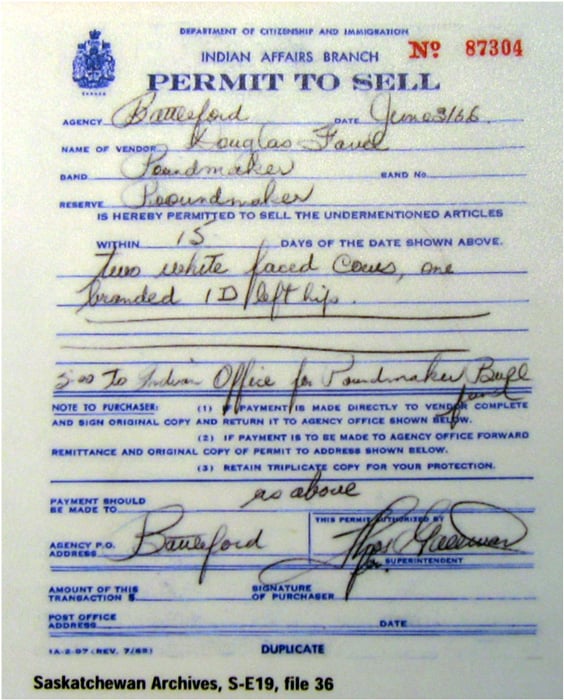 DEPARTMENT OF CITIZENSHIP AND IMMIGRATION
INDIAN AFFAIRS BRANCH Nº 87304
PERMIT TO SELL
CANADA
AGENCY Battleford DATE June 3/66
NAME OF VENDOR Douglas Favel
BAND Poundmaker BAND No.
RESERVE Pooundmaker
IS HEREBY PERMITTED TO SELL THE UNDERMENTIONED ARTICLES
WITHIN 15 DAYS OF THE DATE SHOWN ABOVE.
two white faced Cows, one
branded 1D left hip.
5 00 To Indian Office for Poundmaker Bull
fund
NOTE TO PURCHASER: (1) IF PAYMENT IS MADE DIRECTLY TO VENDOR COMPLETE
AND SIGN ORIGINAL COPY AND RETURN IT TO AGENCY OFFICE SHOWN BELOW.
(2) IF PAYMENT IS TO BE MADE TO AGENCY OFFICE FORWARD
REMITTANCE AND ORIGINAL COPY OF PERMIT TO ADDRESS SHOWN BELOW.
(3) RETAIN TRIPLICATE COPY FOR YOUR PROTECTION.
PAYMENT SHOULD
BE MADE TO as above
THIS PERMIT AUTHORIZED BY
AGENCY P.O.
ADDRESS Battleford
for SUPERINTENDENT
AMOUNT OF THIS
TRANSACTION $
SIGNATURE
OF PURCHASER
POST OFFICE
ADDRESS DATE
DUPLICATE
Saskatchewan Archives, S-E19, file 36